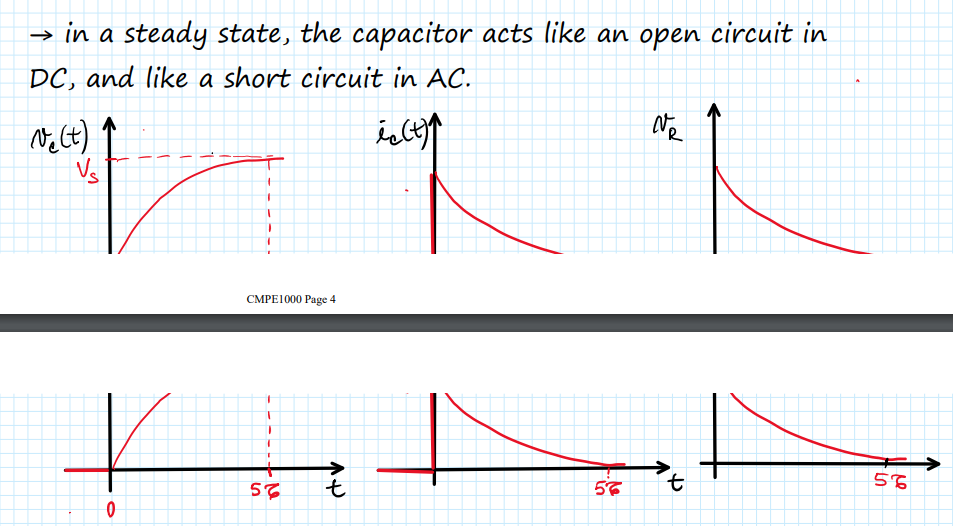 → in a steady state, the capacitor acts like an open circuit in
DC, and like a short circuit in AC.
v_c(t) i_c(t) v_R
V_s
CMPE1000 Page 4
5τ t 5τ t 5τ
0